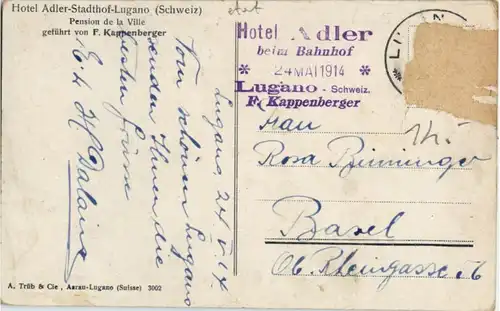 Hotel Adler-Stadthof-Lugano (Schweiz)
Pension de la Ville
geführt von F. Kappenberger
Lugano, 24 V. 14.
Vom schönen Lugano
senden Ihnen die
besten Grüsse
Hotel Adler
beim Bahnhof
* 24 MAI 1914 *
Lugano - Schweiz.
F. Kappenberger
14.-
Frau
Rosa
Basel
Ob. Rheingasse
A. Trüb & Cie, Aarau-Lugano (Suisse) 3002